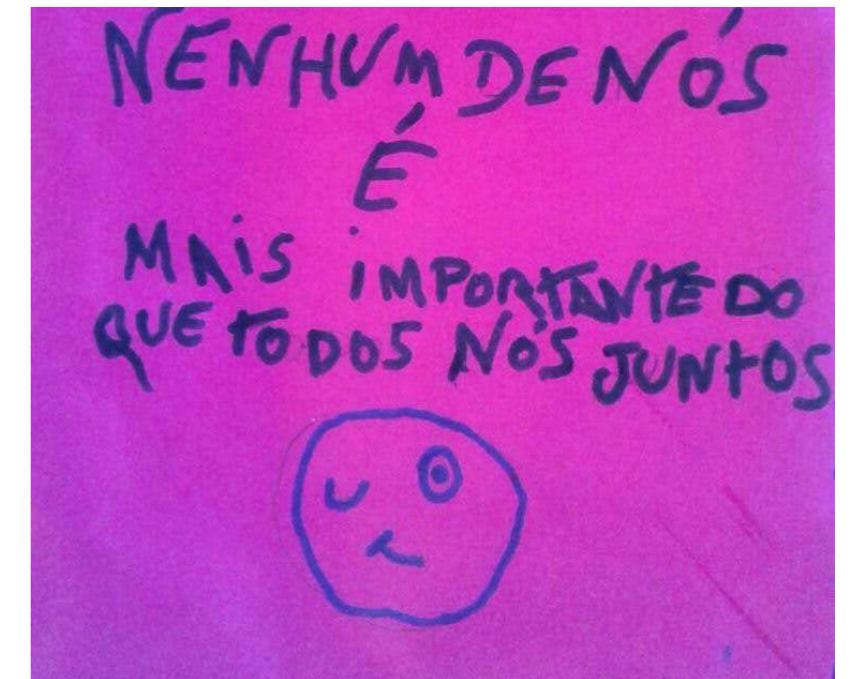 NENHUM DE NÓS
É
MAiS iMPORTANTE DO
QUE TODOS NÓS JUNTOS